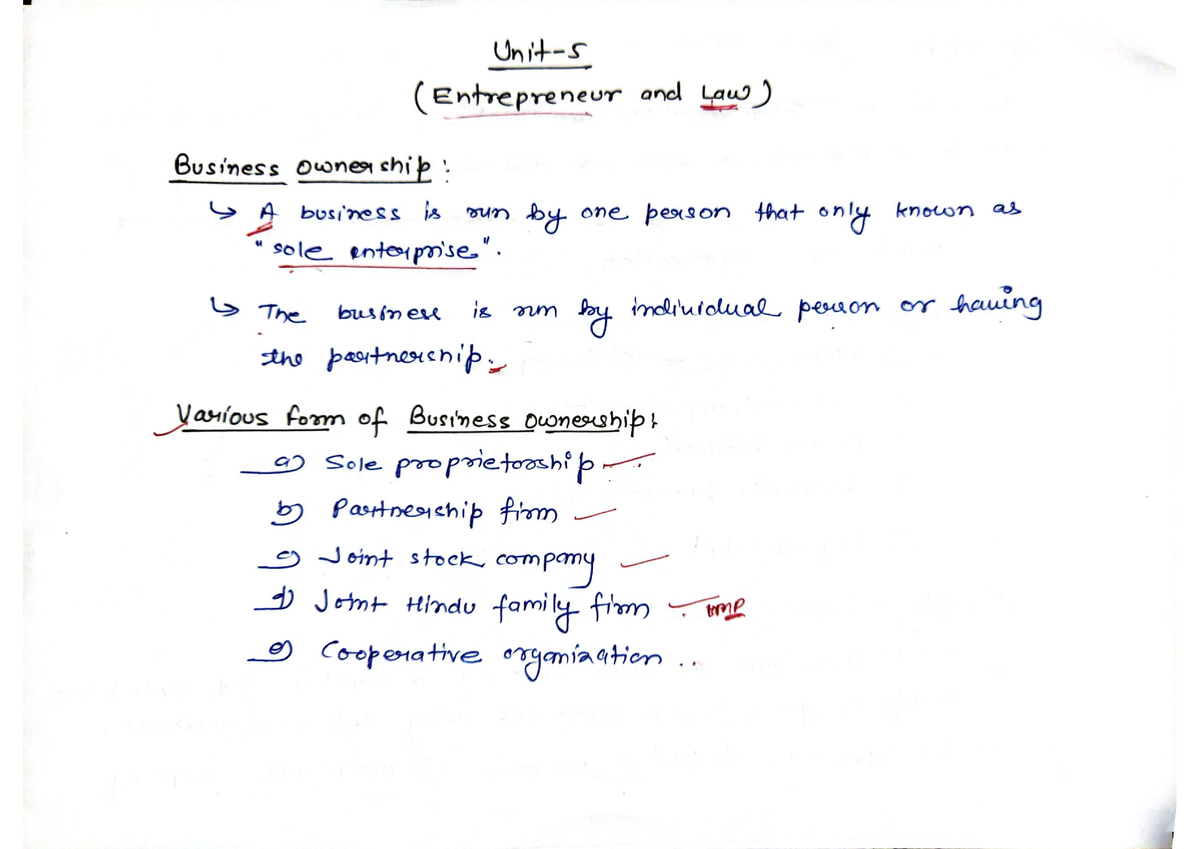 Unit-5
(Entrepreneur and Law)
Business Ownership :
↳ A business is run by one person that only known as
"sole enterprise".
↳ The business is run by individual person or having
the partnership.
Various form of Business ownership :
a) Sole proprietorship
b) Partnership firm
c) Joint stock company
d) Joint Hindu family firm imp
e) Cooperative organization ..